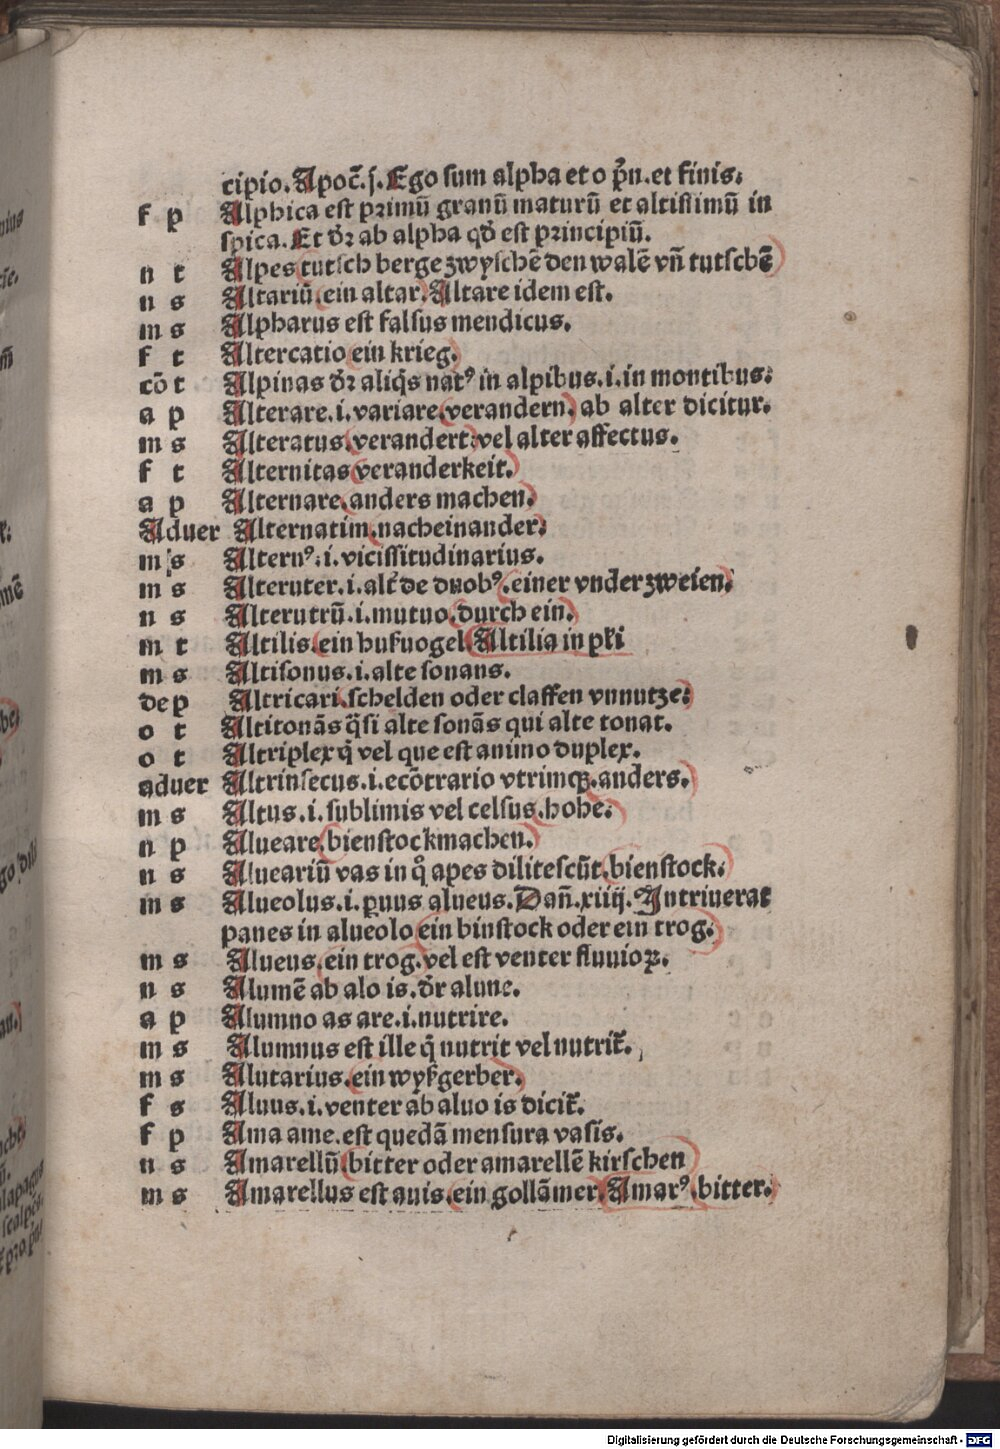 cipio. Apoc̄. j. Ego sum alpha et o p̄n. et finis.
f p Alphica est primū granū maturū et altissimū in
spica. Et dr̄ ab alpha qd̄ est principiū.
n t Alpes tutsch berge zwyschē den walē vn̄ tutschē
n s Altariū. ein altar. Altare idem est.
m s Alpharus est falsus mendicus.
f t Altercatio ein krieg.
cō t Alpinas dr̄ aliq̄s natꝰ in alpibus. i. in montibus.
a p Alterare. i. variare. verandern. ab alter dicitur.
m s Alteratus. verandert. vel alter affectus.
f t Alternitas veranderkeit.
a p Alternare. anders machen.
Aduer Alternatim. nacheinander.
m s Alternꝰ. i. vicissitudinarius.
m s Alteruter. i. alt̄ de duobꝰ. einer vnder zweien.
n s Alterutrū. i. mutuo. durch ein.
m t Altilis. ein hufuogel Altilia in pl̄i
m s Altisonus. i. alte sonans.
de p Altricari. schelden oder claffen vnnutze.
o t Altitonās q̄si alte sonās qui alte tonat.
o t Altriplex q̄ vel que est animo duplex.
aduer Altrinsecus. i. ecōtrario vtrimqꝫ. anders.
m s Altus. i. sublimis vel celsus. hohe.
n p Alueare bienstockmachen.
n s Alueariū vas in qͦ apes dilitescūt. bienstock.
m s Alueolus. i. ꝑuus alueus. Dan̄. xiiij. Intriuerat
panes in alueolo ein binstock oder ein trog.
m s Alueus. ein trog. vel est venter fluuioꝝ.
n s Alumē ab alo is. dr̄ alune.
a p Alumno as are. i. nutrire.
m s Alumnus est ille q̄ nutrit vel nutrit̄.
m s Alutarius. ein wyßgerber.
f s Aluus. i. venter ab aluo is dicit̄.
f p Ama ame. est quedā mensura vasis.
n s Amarellū bitter oder amarellē kirschen
m s Amarellus est auis. ein gollāmer. Amarꝰ. bitter.
Digitalisierung gefördert durch die Deutsche Forschungsgemeinschaft - DFG